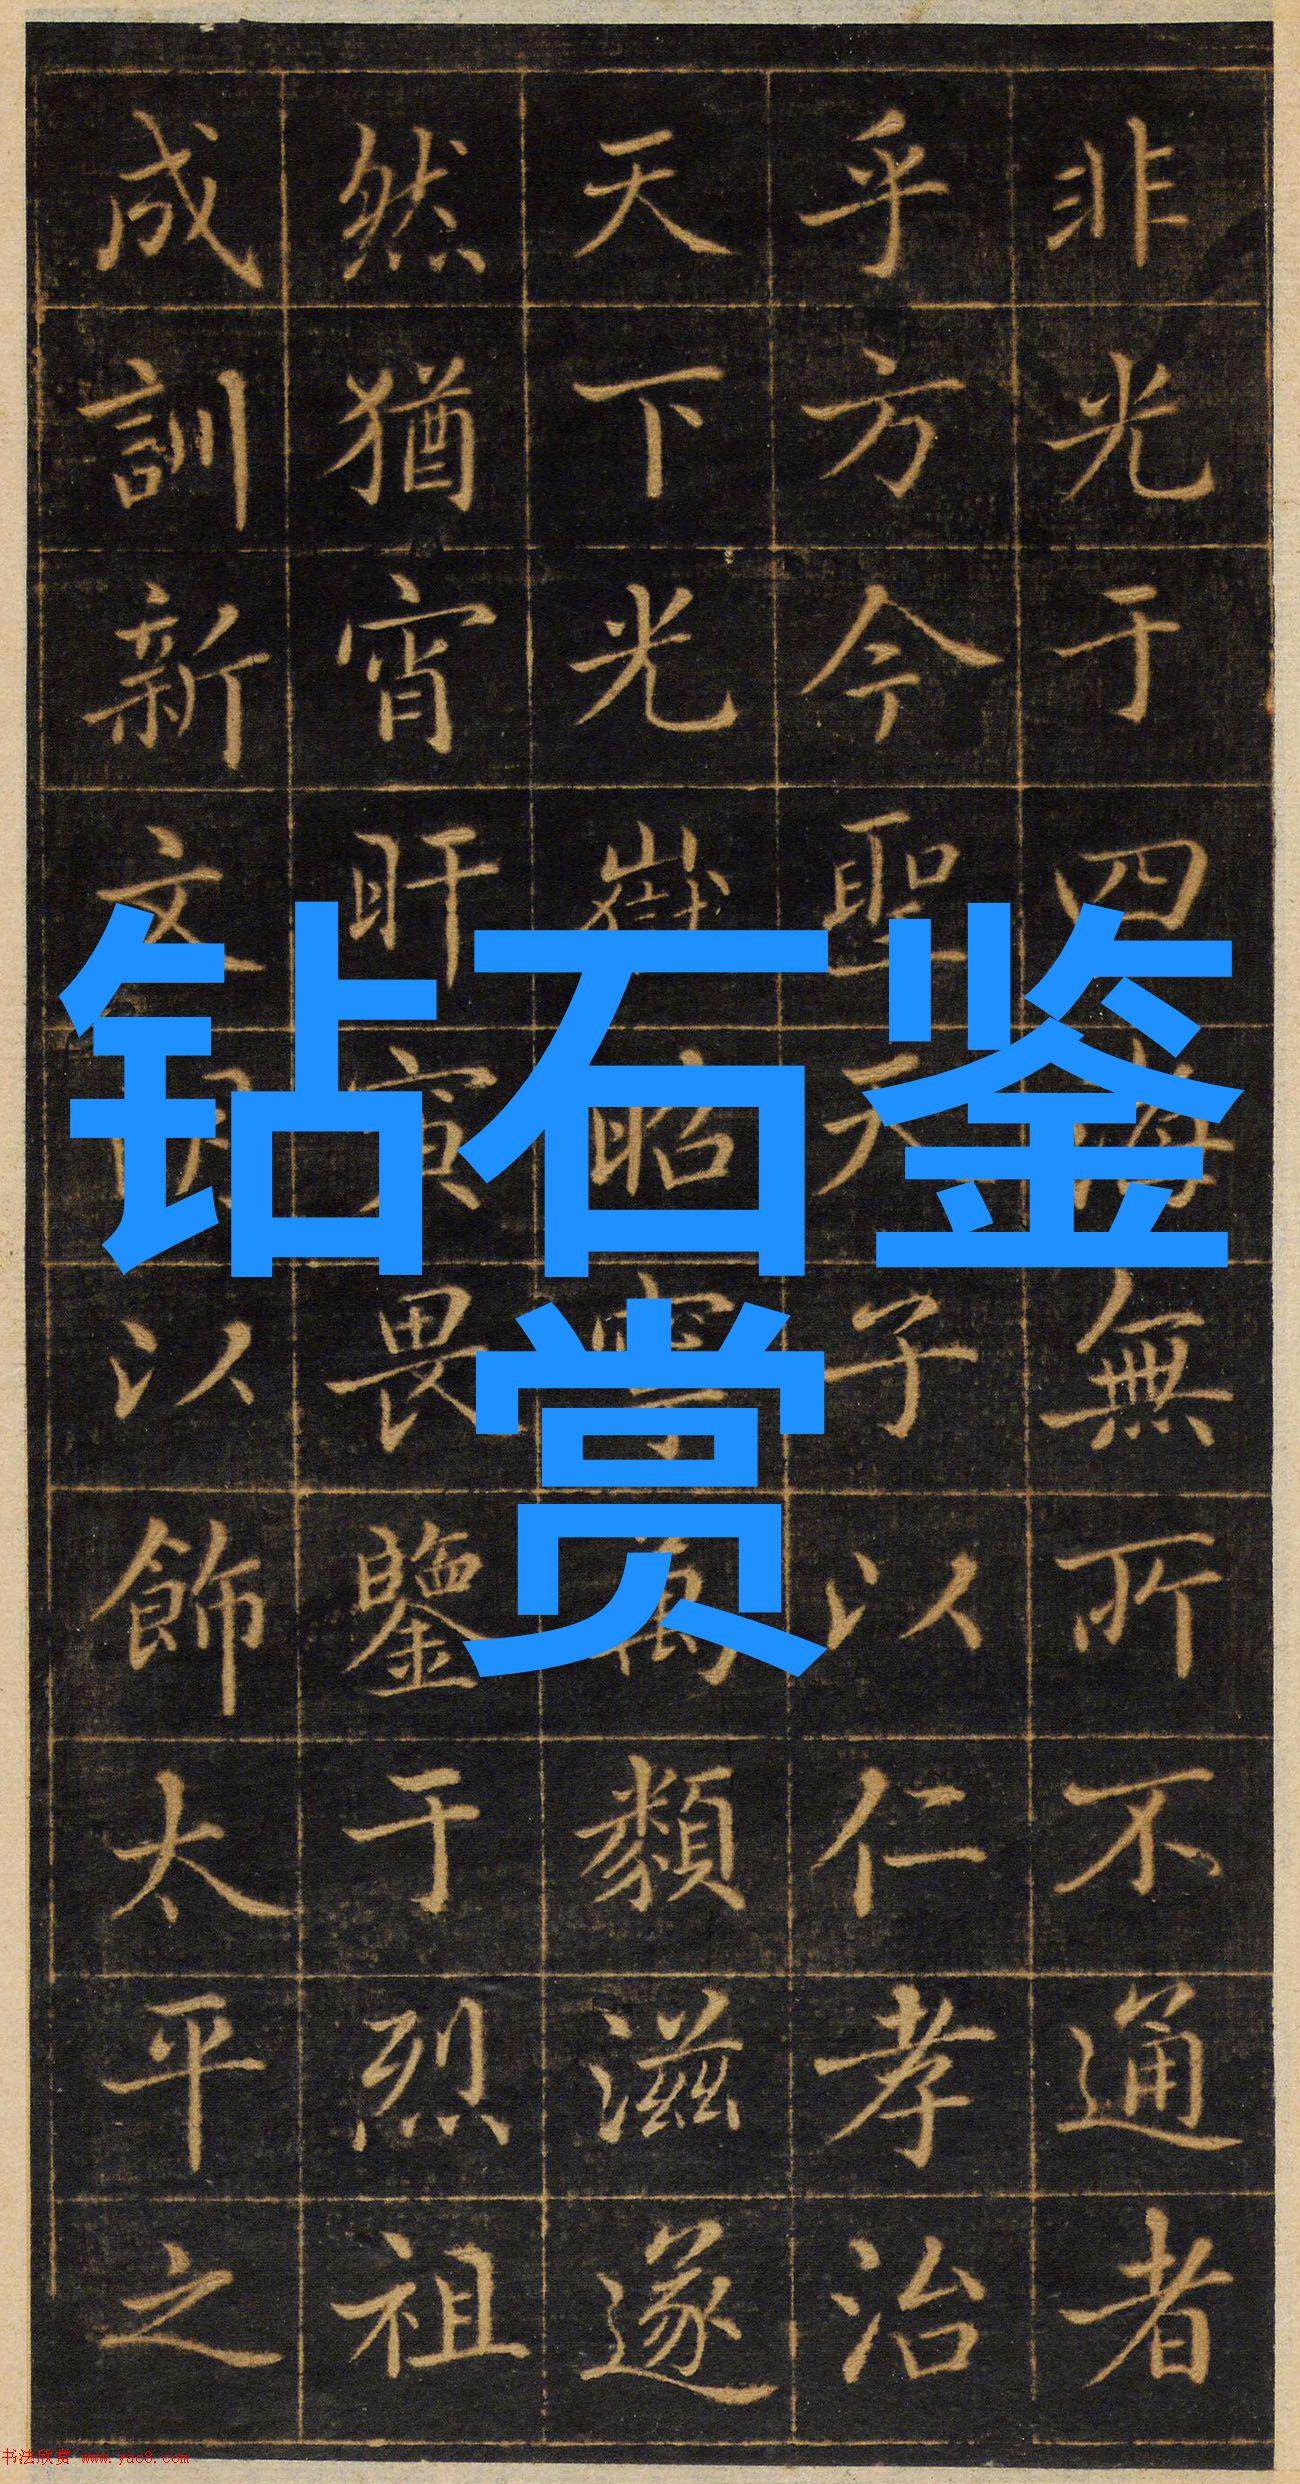 非光于四海無所不通者
乎方今聖天子以仁孝治
天下光嶽寧萬類滋遂
然猶宵旰寅畏鑒于烈祖
成訓新文以飾太平之
钻石鉴
赏
书法欣赏 www.yac8.com